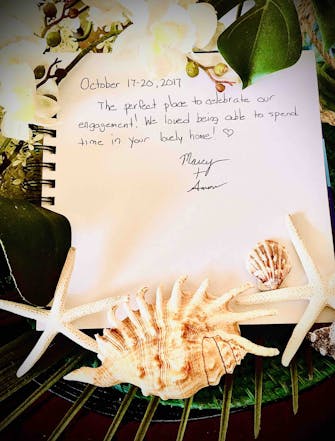 October 17-20, 2017
The perfect place to celebrate our
engagement! We loved being able to spend
time in your lovely home! ♡
Marcy
+
Aaron